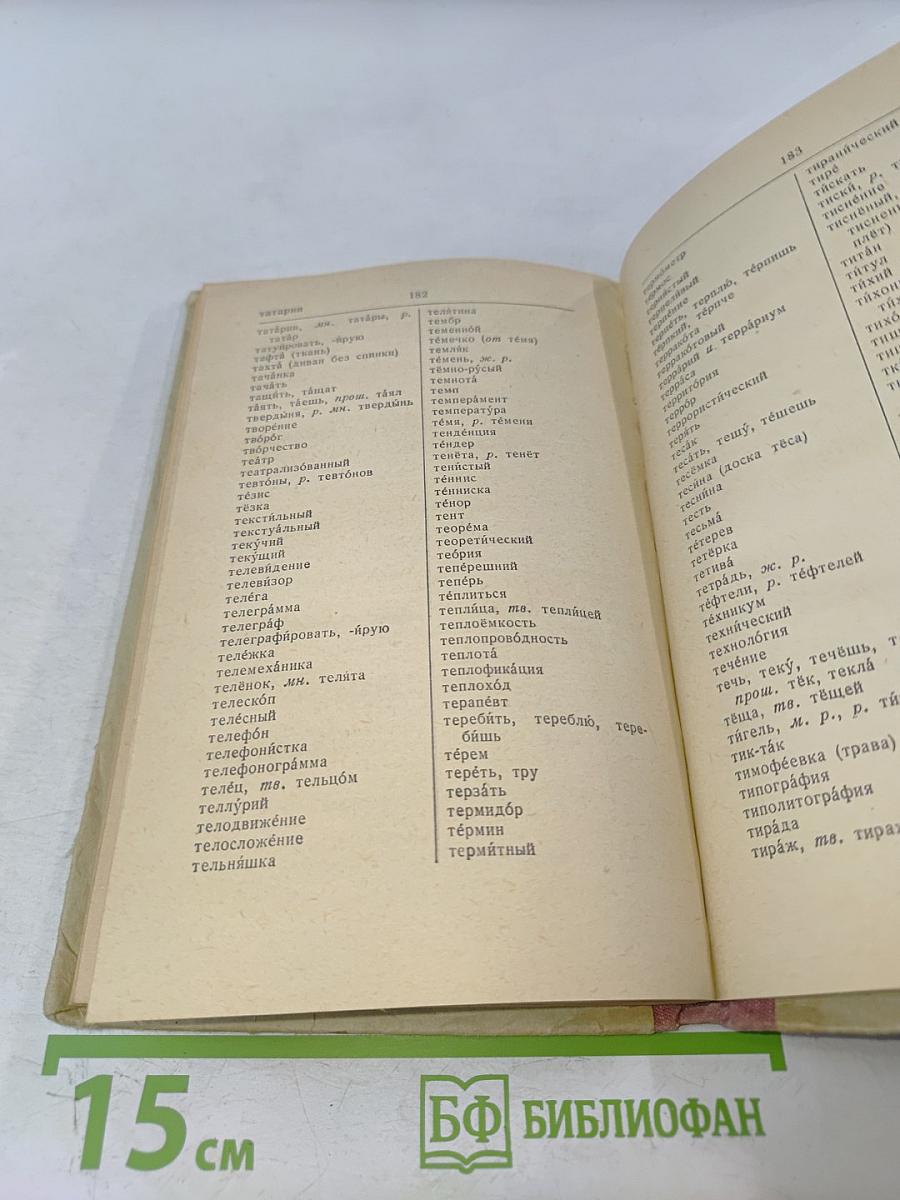 татарин
182
тата́рин, мн. тата́ры, р.
тата́р
татуи́ровать, -и́рую
тафта́ (ткань)
тахта́ (диван без спинки)
тача́нка
тача́ть
тащи́ть, та́щат
та́ять, та́ешь, прош. та́ял
тверды́ня, р. мн. тверды́нь
творе́ние
тво́ро́г
тво́рчество
теа́тр
театрализо́ванный
тевто́ны, р. тевто́нов
те́зис
тёзка
тексти́льный
текстуа́льный
теку́чий
теку́щий
телеви́дение
телеви́зор
теле́га
телегра́мма
телегра́ф
телеграфи́ровать, -и́рую
теле́жка
телемеха́ника
телёнок, мн. теля́та
телеско́п
теле́сный
телефо́н
телефони́стка
телефоногра́мма
теле́ц, тв. тельцо́м
теллу́рий
телодвиже́ние
телосложе́ние
тельня́шка
теля́тина
тембр
теменно́й
те́мечко (от те́мя)
темля́к
те́мень, ж. р.
тёмно-ру́сый
темнота́
темп
темпера́мент
температу́ра
те́мя, р. те́мени
тенде́нция
те́ндер
тенёта, р. тенёт
тени́стый
те́ннис
те́нниска
те́нор
тент
теоре́ма
теорети́ческий
тео́рия
тепе́решний
тепе́рь
те́плиться
тепли́ца, тв. тепли́цей
теплоёмкость
теплопрово́дность
теплота́
теплофика́ция
теплохо́д
терапе́вт
тереби́ть, тереблю́, тере-
би́шь
те́рем
тере́ть, тру
терза́ть
термидо́р
те́рмин
терми́тный
183
термо́метр
те́рмос
терни́стый
терпели́вый
терпе́ние
терпе́ть, терплю́, те́рпишь
те́рпкий, те́рпче
террако́та
террако́товый
терра́рий и терра́риум
терра́са
террито́рия
терро́р
террористи́ческий
теря́ть
теса́к
теса́ть, тешу́, те́шешь
тесёмка
теси́на (доска тёса)
тесни́на
тесть
тесьма́
те́терев
тетёрка
тетива́
тетра́дь, ж. р.
те́фтели, р. те́фтелей
те́хникум
техни́ческий
техноло́гия
тече́ние
течь, теку́, течёшь,
прош. тёк, текла́
тёща, тв. тёщей
ти́гель, м. р., р.
тик-та́к
тимофе́евка (трава)
типогра́фия
типолитогра́фия
тира́да
тира́ж, тв.
тирани́ческий
тире́
ти́скать
тиски́, р.
тисне́ние
тиснёный,
плёт)
тита́н
ти́тул
ти́хий
15 см
БФ БИБЛИОФАН